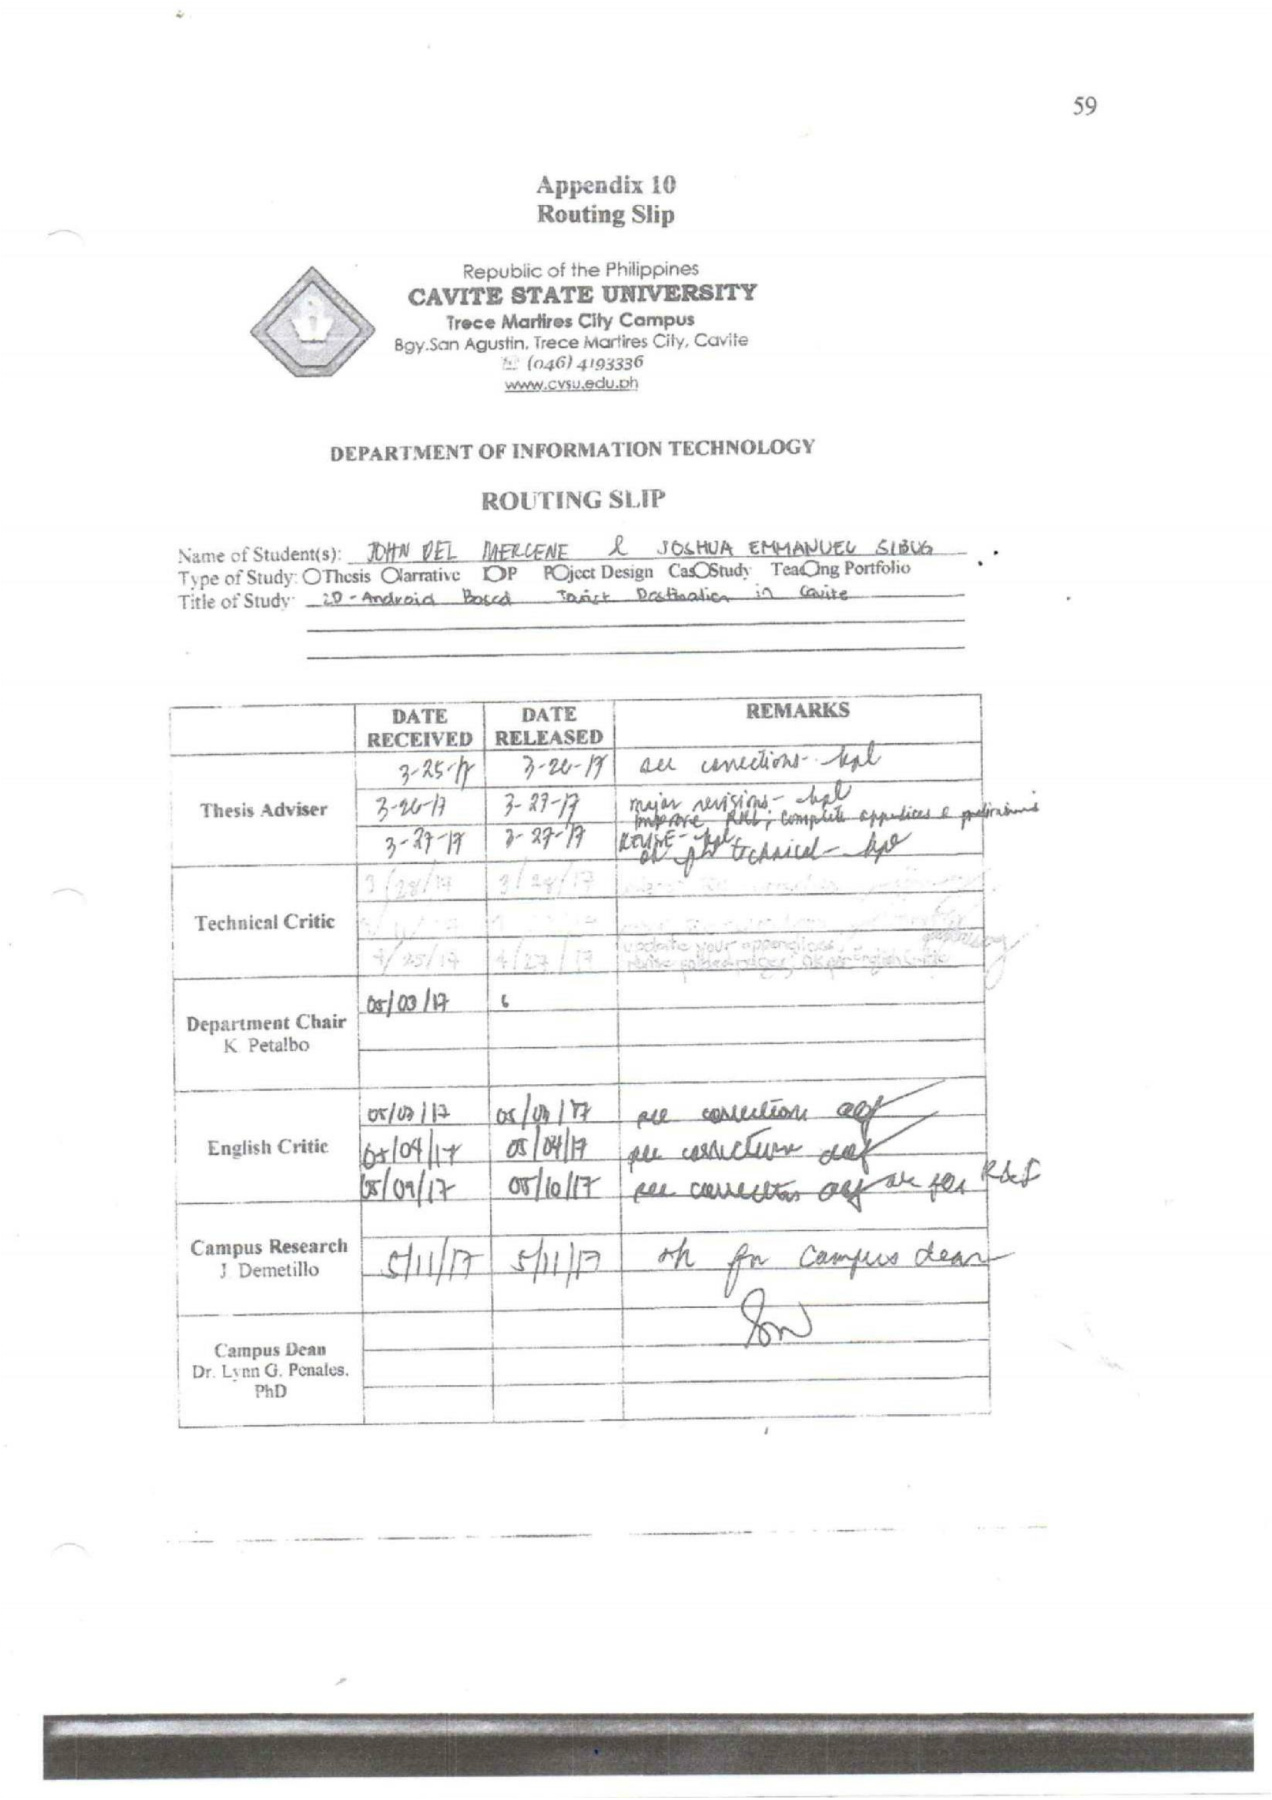 59
Appendix 10
Routing Slip
Republic of the Philippines
CAVITE STATE UNIVERSITY
Trece Martires City Campus
Bgy.San Agustin, Trece Martires City, Cavite
(046) 4193336
www.cvsu.edu.ph
DEPARTMENT OF INFORMATION TECHNOLOGY
ROUTING SLIP
Name of Student(s): JOHN DEL MERCENE & JOSHUA EMMANUEL SIBUG
Type of Study: Thesis Narrative P Project Design Case Study Teaching Portfolio
Title of Study: 2D-Android Based Tourist Destination in Cavite
DATE RECEIVED DATE RELEASED REMARKS
Thesis Adviser
3-25-17 3-26-17 see corrections - kpl
3-26-17 3-27-17 major revisions - kpl
improve RRL; complete appendices &
3-27-17 3-27-17 REVISE - kpl
technical - kpl
Technical Critic
3/28/17 3/28/17
4/25/17 4/27/17 update your appendices
OK for English Critic
Department Chair
K. Petalbo
05/03/17
English Critic
05/03/17 see corrections
05/04/17 05/04/17 see corrections
05/09/17 05/10/17 see corrections
Campus Research
J. Demetillo
5/11/17 5/11/17 ok for Campus dean
Campus Dean
Dr. Lynn G. Penales,
PhD